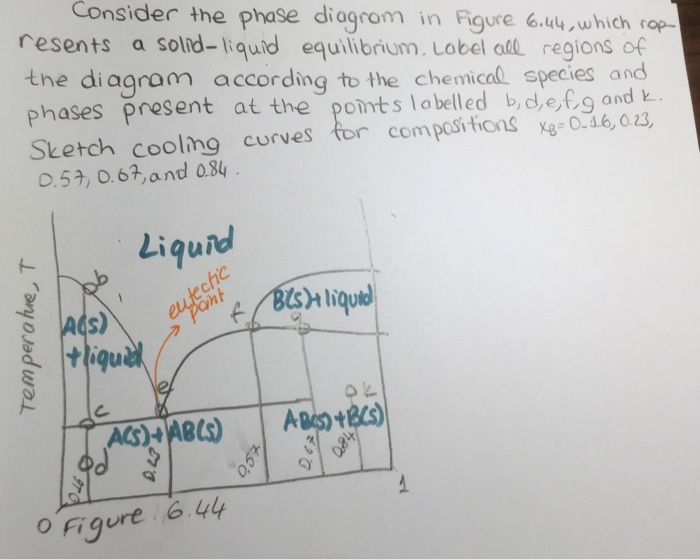 Consider the phase diagram in Figure 6.44, which rap-
resents a solid-liquid equilibrium. Label all regions of
the diagram according to the chemical species and
phases present at the points labelled b,d,e,f,g and k.
Sketch cooling curves for compositions xB=0.16, 0.23,
0.57, 0.67, and 0.84.
Temperature, T
Liquid
b
eutectic
point
f
B(s)+liquid
g
A(s)
+liquid
e
k
c
A(s)+AB(s)
AB(s)+B(s)
d
0.16
0.23
0.57
0.67
0.84
1
0 Figure 6.44